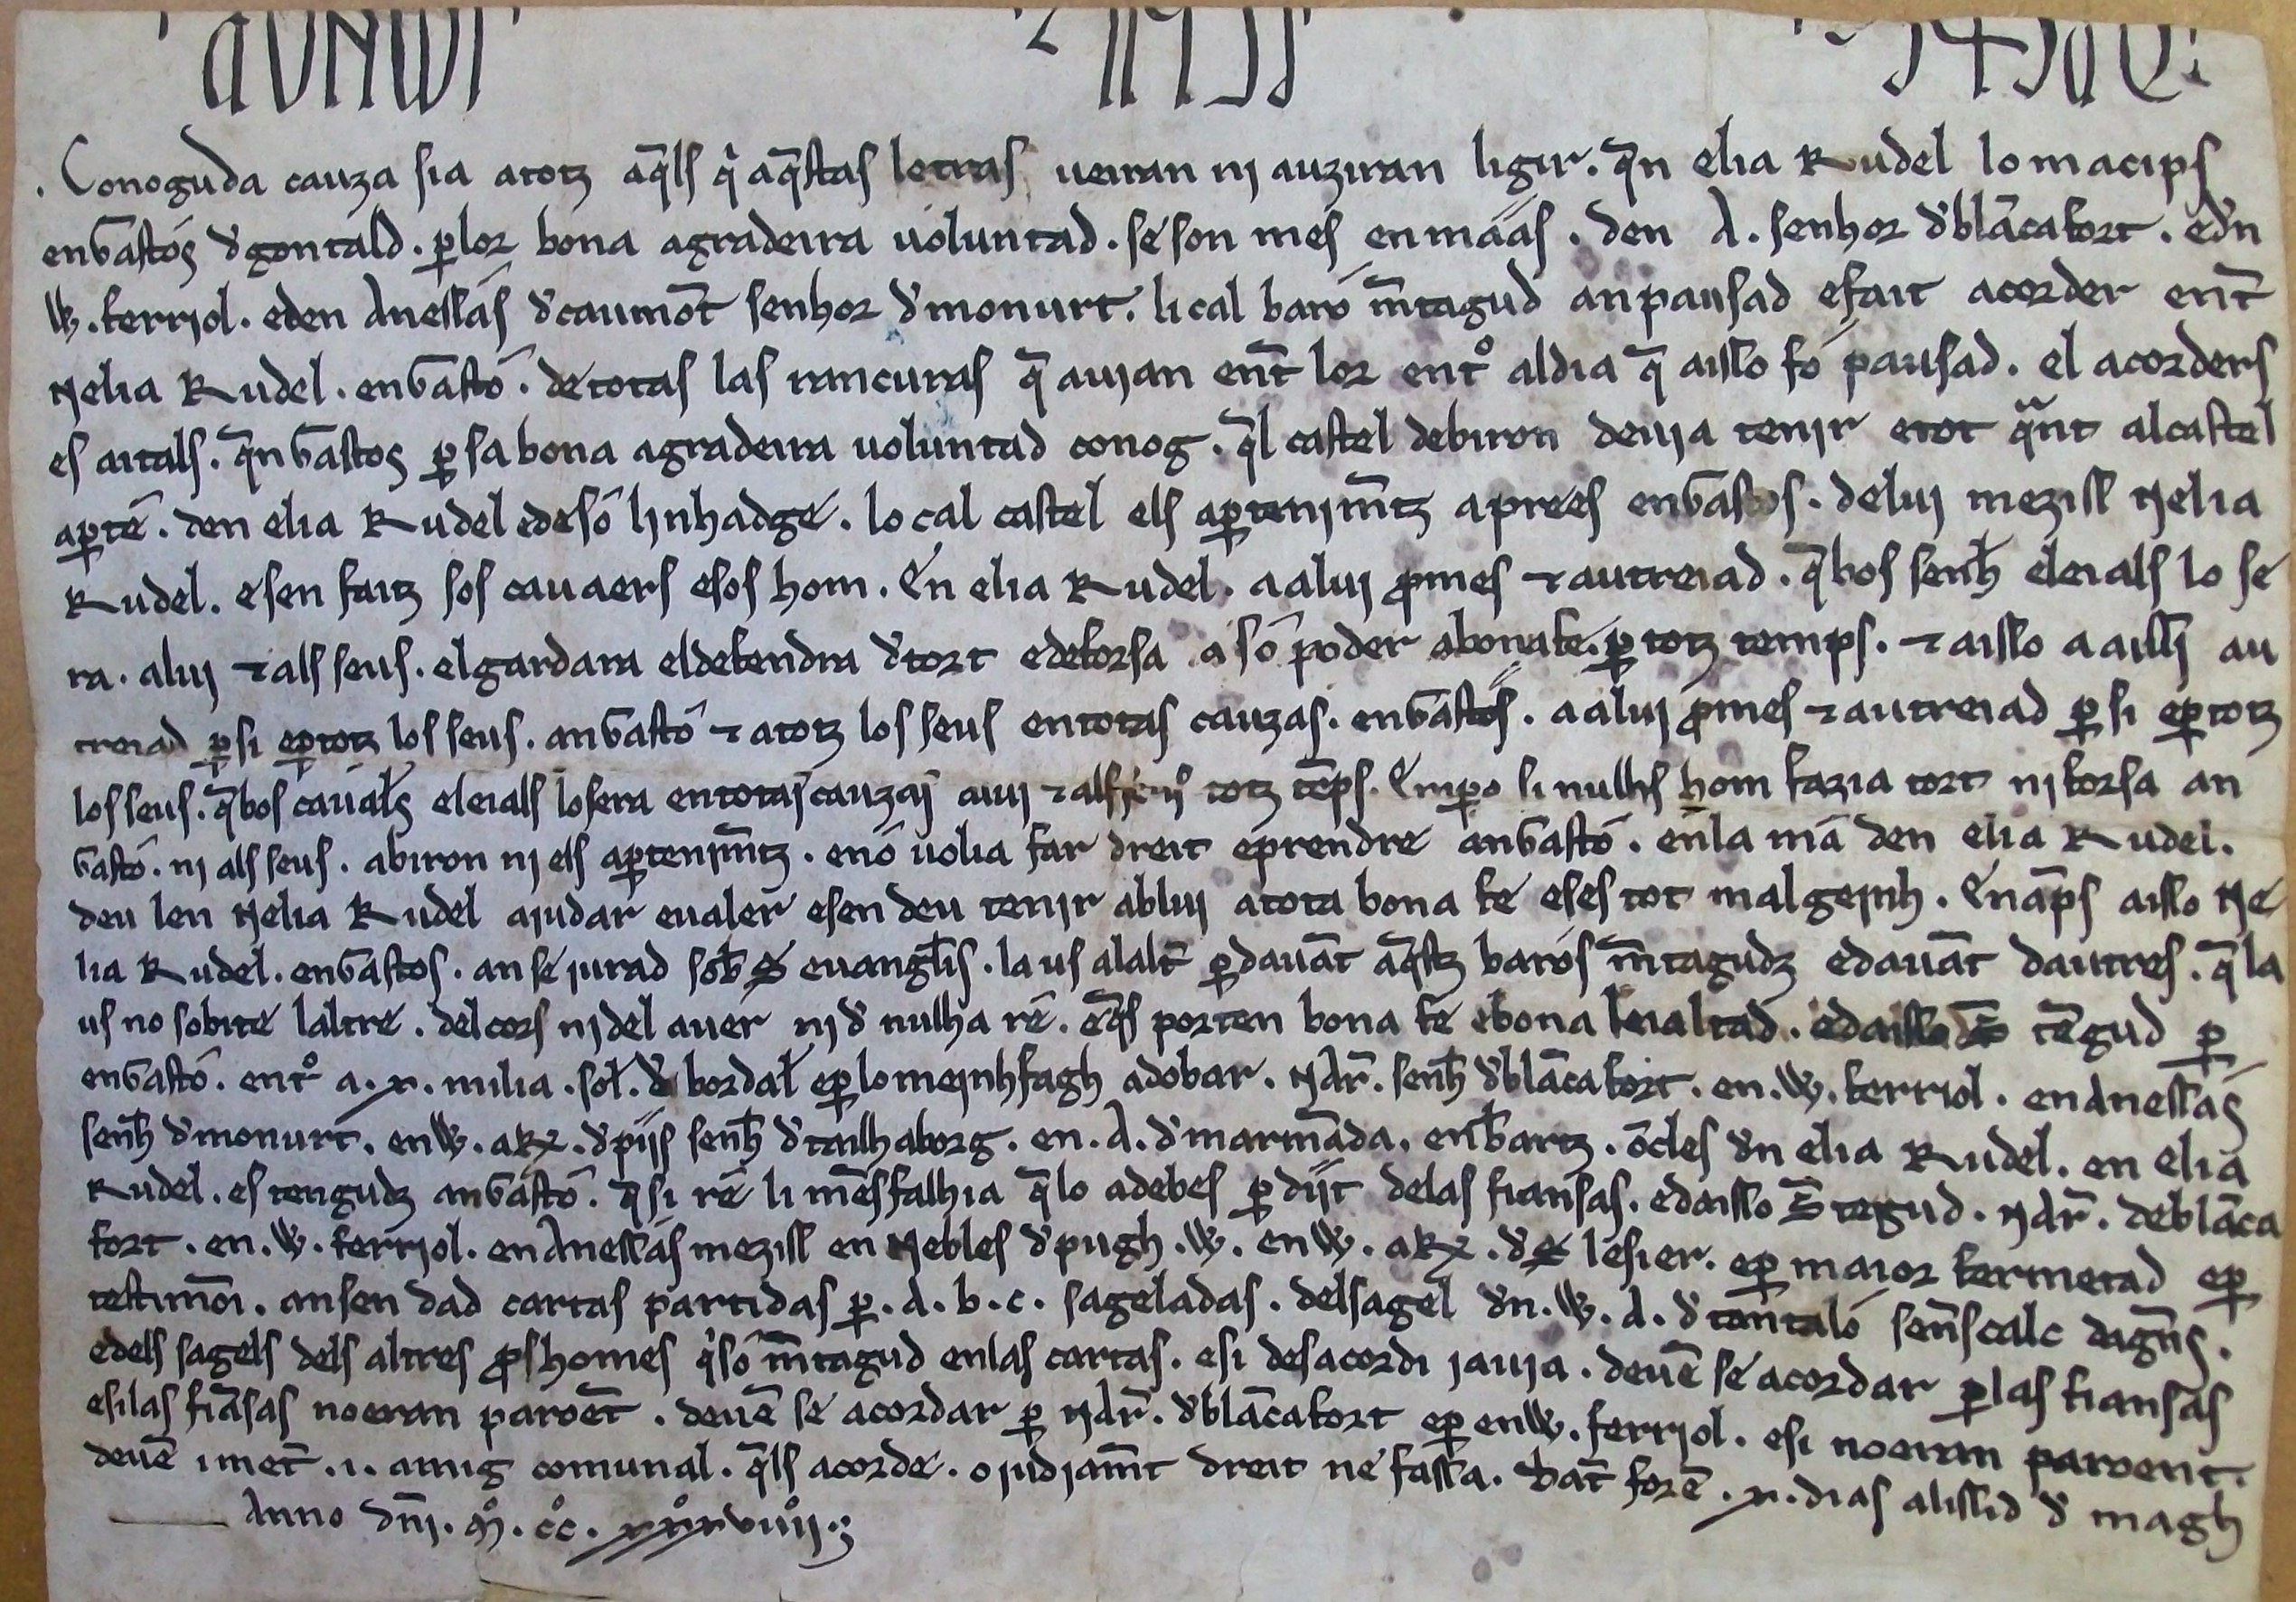 . Conoguda cauza sia atotz aq̄ls qi aq̄stas letras ueiran nj auziran ligir. q̄n elia Rudel lo macips
en Gastos d' gontald. ꝑ lor bona agradeira uoluntad. se son mes en māās. den A. senhor d' blācafort. ed'n
W. ferriol. eden Anessās d' caumōt senhor d' monurt. li cal barō m̄tagud an pausad e fait acorder ent̄
Nelia Rudel. en Gastō. de totas las rancuras q̄ auian ent̄ lor entº al dia q̄ aisso fo pausad. el acorders
es aitals. q̄n Gastos ꝑ sa bona agradeira uoluntad conog. q̄l castel de biron deuia tenir e tot q̄nt al castel
aꝑtē. den elia Rudel e de sō linhadge. lo cal castel els aꝑtenim̄tz a prees en Gastos. de luj meziss Nelia
Rudel. e sen faitz sos cauaers e sos hom. En elia Rudel. a a luj ꝓmes ⁊ autreiad. q̄ bos senh̄ e leials lo se
ra. a luj ⁊ als seus. el gardara el defendra d' tort e de forsa a sō poder a bona fe. ꝑ totz temps. ⁊ aisso a aissi au
treiad ꝑ si e ꝑ totz los seus. an Gastō ⁊ a totz los seus en totas cauzas. en Gastos. a a luj ꝓmes ⁊ autreiad ꝑ si e ꝑ totz
los seus. q̄ bos caual̄s e leials lo sera en totas cauzas a luj ⁊ als seus totz tēps. Emꝑo si nulhs hom fazia tort nj forsa an
Gastō. nj als seus. a biron nj els aꝑtenim̄tz. e nō uolia far dreit e prendre an Gastō. en la mā den elia Rudel.
deu len Nelia Rudel aiudar e ualer e sen deu tenir ab luj a tota bona fe e ses tot mal geinh. En āps aisso Ne
lia Rudel. en Gastos. an se jurad sob̄ euangl̄is. la us al alt̄ ꝑ dauāt aq̄stz barōs m̄tagudz e dauāt dautres. q̄ la
us no sobite laltre. del cors nj del auer nj d' nulha rē. e q̄s porten bona fe e bona leialtad. e daisso tēgud ꝑ
en Gastō. entº a. x. milia. sol̄. d' bordal̄ e ꝑ lo meinhfagh adobar. N Ar̄. senh̄ d' blācafort. en. W. ferriol. en Anessās
senh̄ d' monurt. en W. a R. d' pijs senh̄ d' tailhaborg. en. A. d' marmāda. en b̄artz. ōcles d'n elia Rudel. en elia
Rudel. es tengudz an Gastō. q̄ si rē li mēsfalhia q̄ lo adebes ꝑ dijt de las fiansas. e daisso s̄ tegud. N Ar̄. de blāca
fort. en. W. ferriol. en Anessās meziss en Nebles d' pugh. W. en W. a R. d' lesier. e ꝑ maior fermetad e ꝑ
testimōi. an sen dad cartas partidas ꝑ. A. b. c. sageladas. del sagel d'n. W. A. d' tontalō sen̄scalc dagn̄s.
e dels sagels dels altres ꝓshomes qi sō m̄tagud en las cartas. e si desacordi jauia. deuē se acordar ꝑ las fiansas
e si las fiāsas no eran paruēt. deuē se acordar ꝑ N Ar̄. d' blācafort e ꝑ en W. ferriol. e si no eran paruent.
deuē i met̄. i. amig comunal. q̄ls acorde. o judjam̄t dreit ne fassa. Dat̄ forē. x. dias a lissid d' magh
Anno dn̄i. mº. ccº. xxxº viiijº.